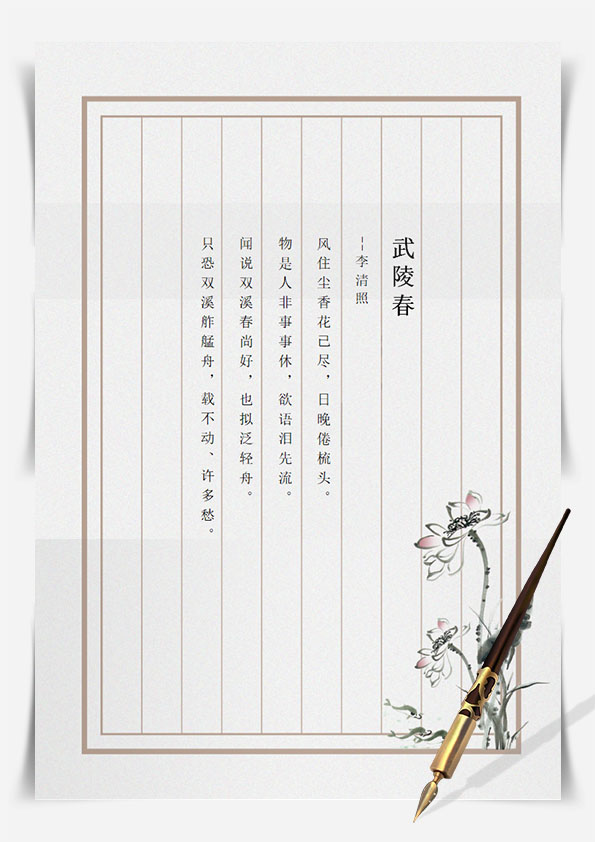 武陵春
--李清照
风住尘香花已尽，日晚倦梳头。
物是人非事事休，欲语泪先流。
闻说双溪春尚好，也拟泛轻舟。
只恐双溪舴艋舟，载不动、许多愁。